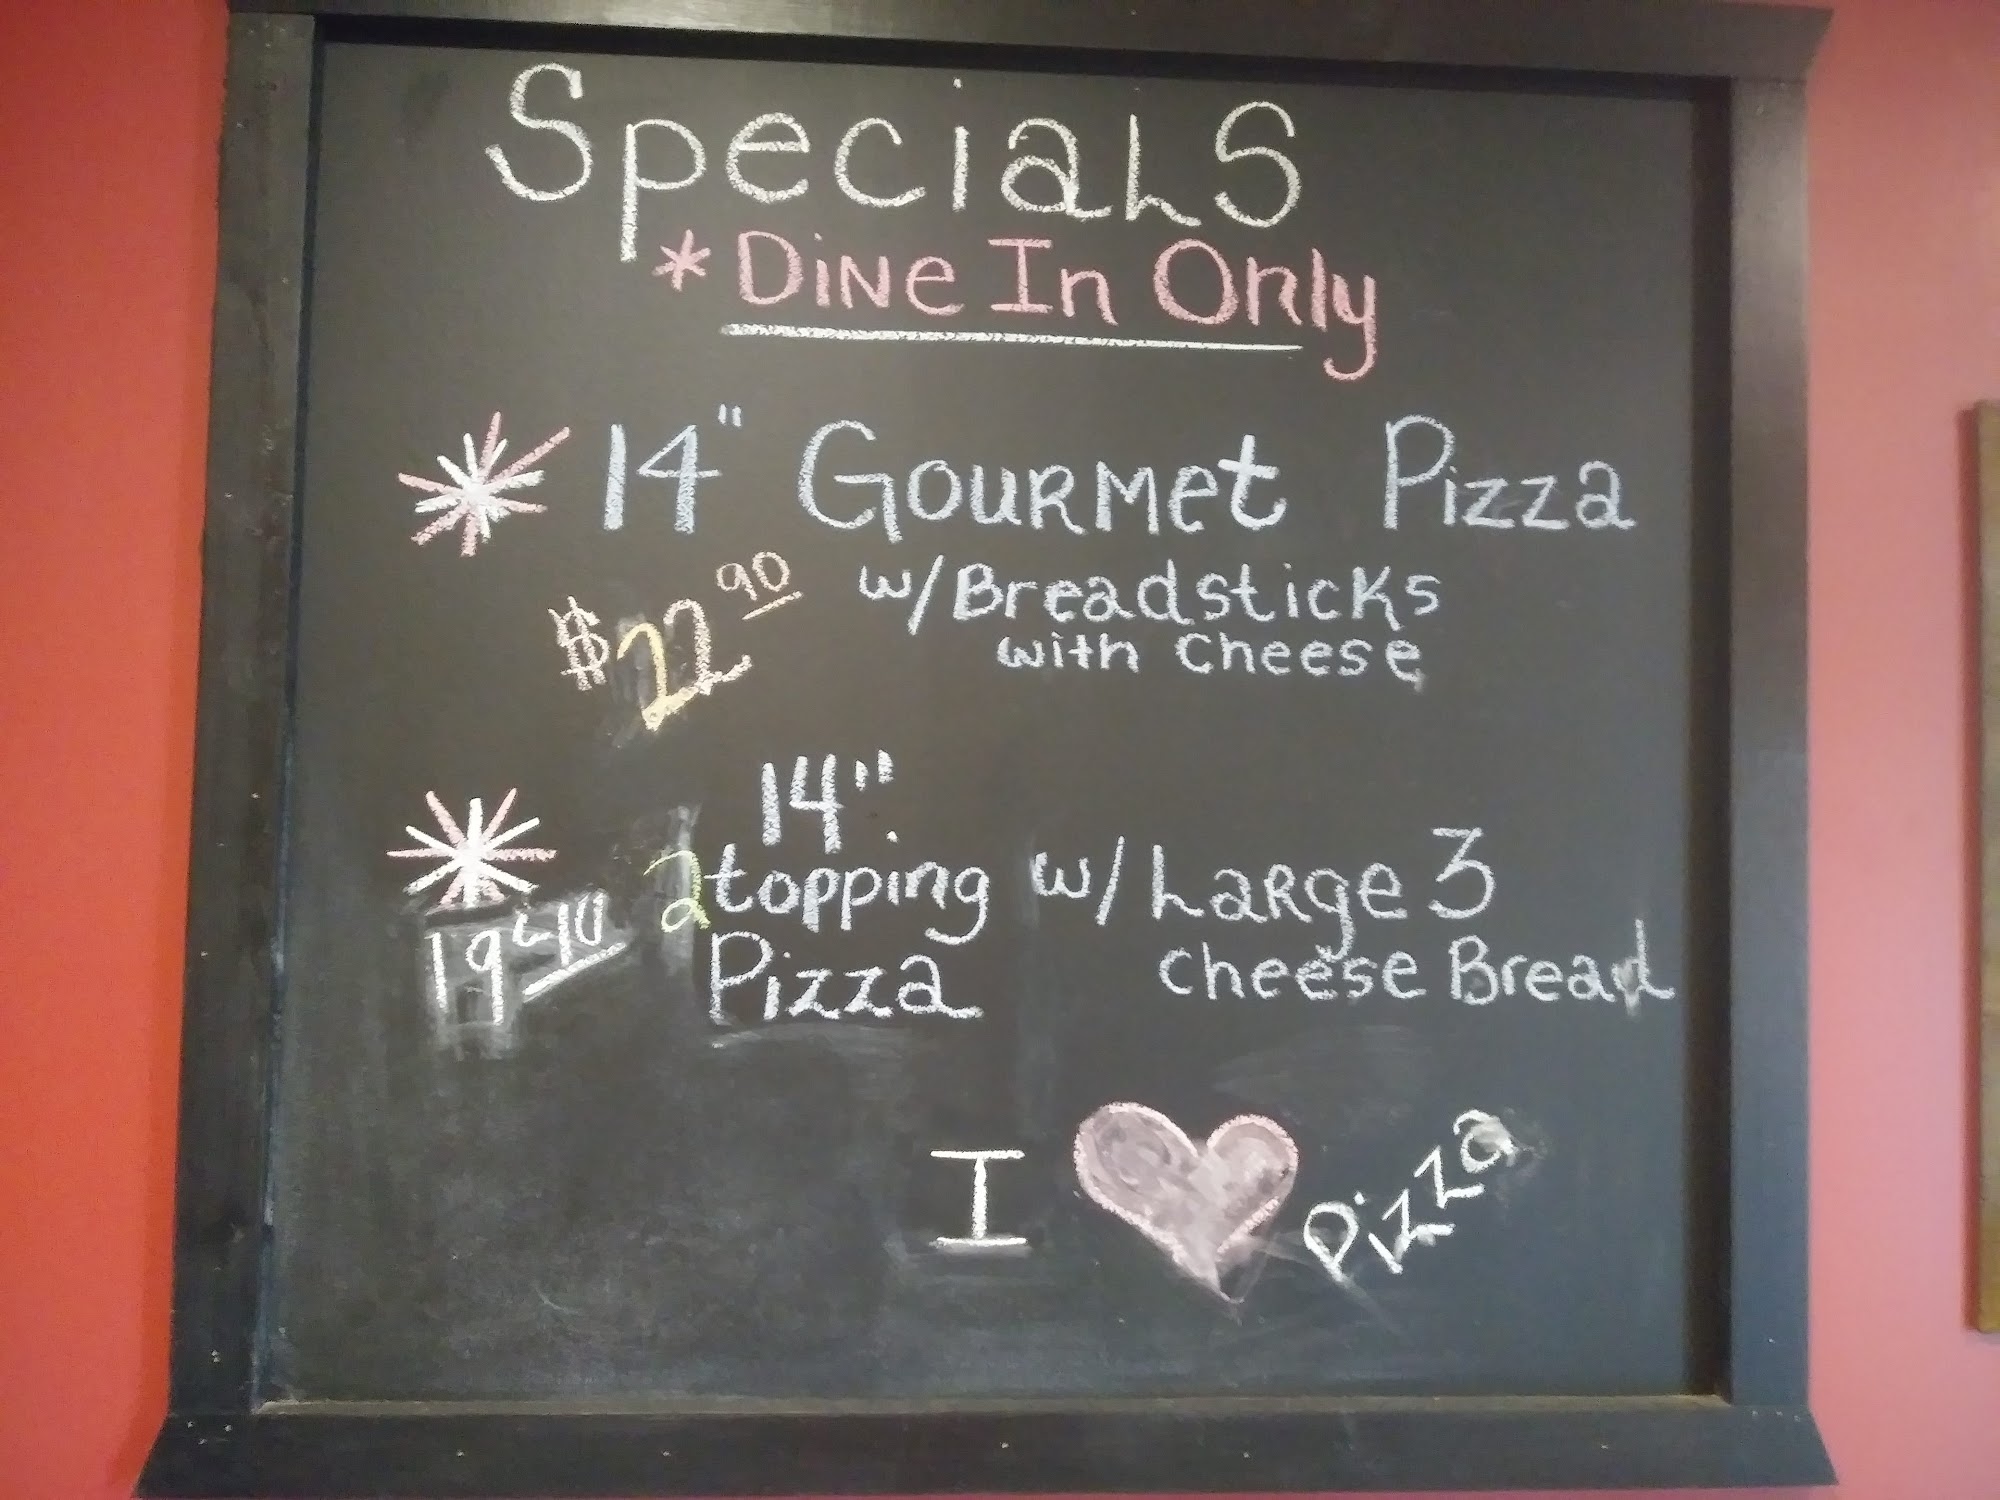 Specials
*Dine In Only
14" Gourmet Pizza
$22.90 w/Breadsticks
with Cheese
14"
2 topping w/ Large 3
19.40 Pizza Cheese Bread
I ♥ Pizza